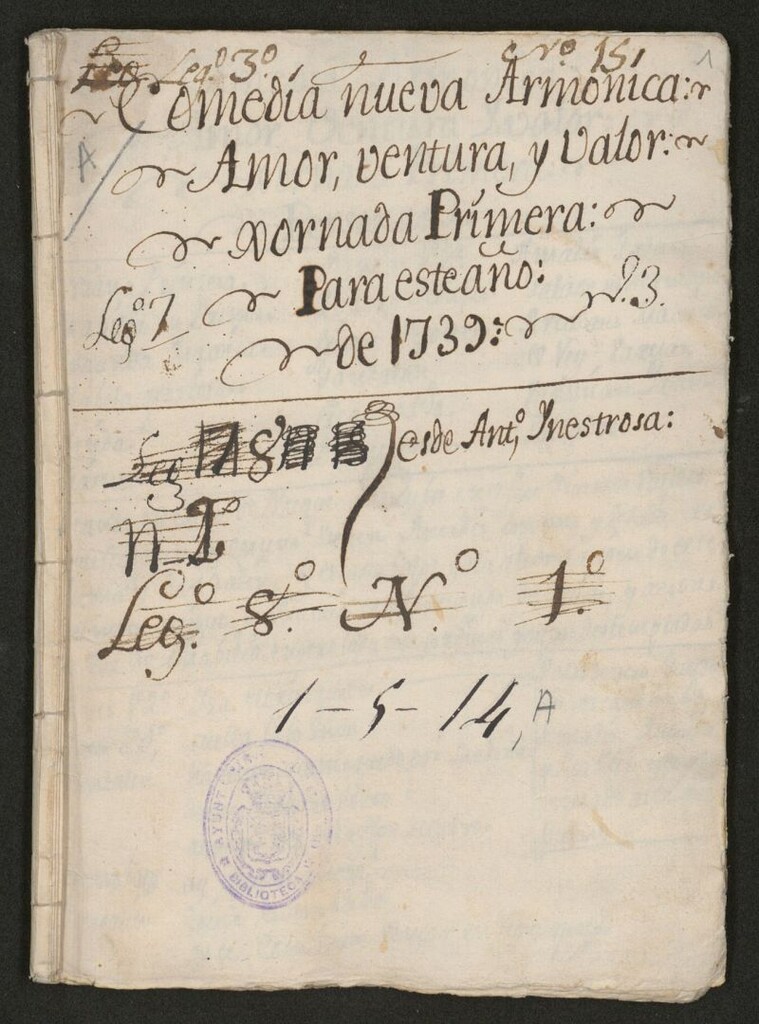 Leg.º 3º N.º 15,
1
Comedia nueva Armónica:
A
Amor, ventura, y valor:
Jornada Primera:
Para este año:
Leg.º 7 N.º 3.
de 1739:
Leg
esde Ant.º Ynestrosa:
3
n 1º
Leg.º 8.º N.º 1.º
1-5-14, A
AYUNTA
BIBLIOTECA